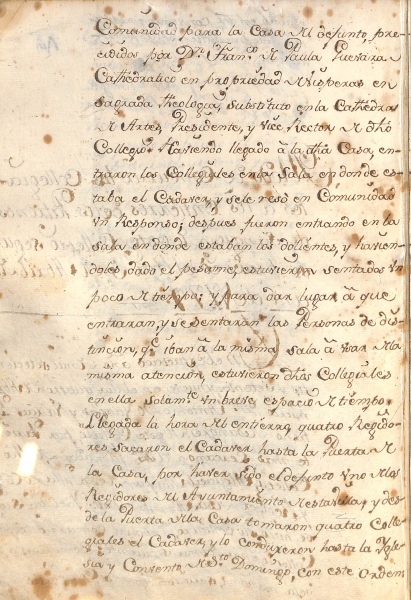 Comunidad para la Casa del difunto, pre-
cedidos por Dn. Franco. de Paula Guevara
Cathedratico en propriedad de Visperas en
Sagrada Theologia, substituto en la Cathedra
de Artes, Presidente, y Vice Rector de dho
Collegio. Haviendo llegado â la dha Casa, en-
traron los Collegiales en la Sala en donde es-
taba el Cadaver, y se le resó en Comunidad
vn Responso; despues fueron entrando en la
sala en donde estaban los dolientes, y havien-
doles dado el pesame, estuvieron sentados vn
poco de tiempo; y para dar lugar â que
entraran, y se sentaran las Personas de dis-
tincion, qe. iban â la misma sala â vsar de la
misma atencion, estuvieron dhos Collegiales
en ella solamte. vn breve espacio de tiempo.
Llegada la hora del entierro, quatro Regido-
res sacaron el Cadaver hasta la Puerta de
la Casa, por haver sido el defunto vno de los
Regidores del Ayuntamiento de esta villa, y des-
de la Puerta de la Casa tomaron quatro Colle-
giales el Cadaver, y lo condugeron hasta la Ygle-
sia y Convento de Sto. Domingo, con este Orden: